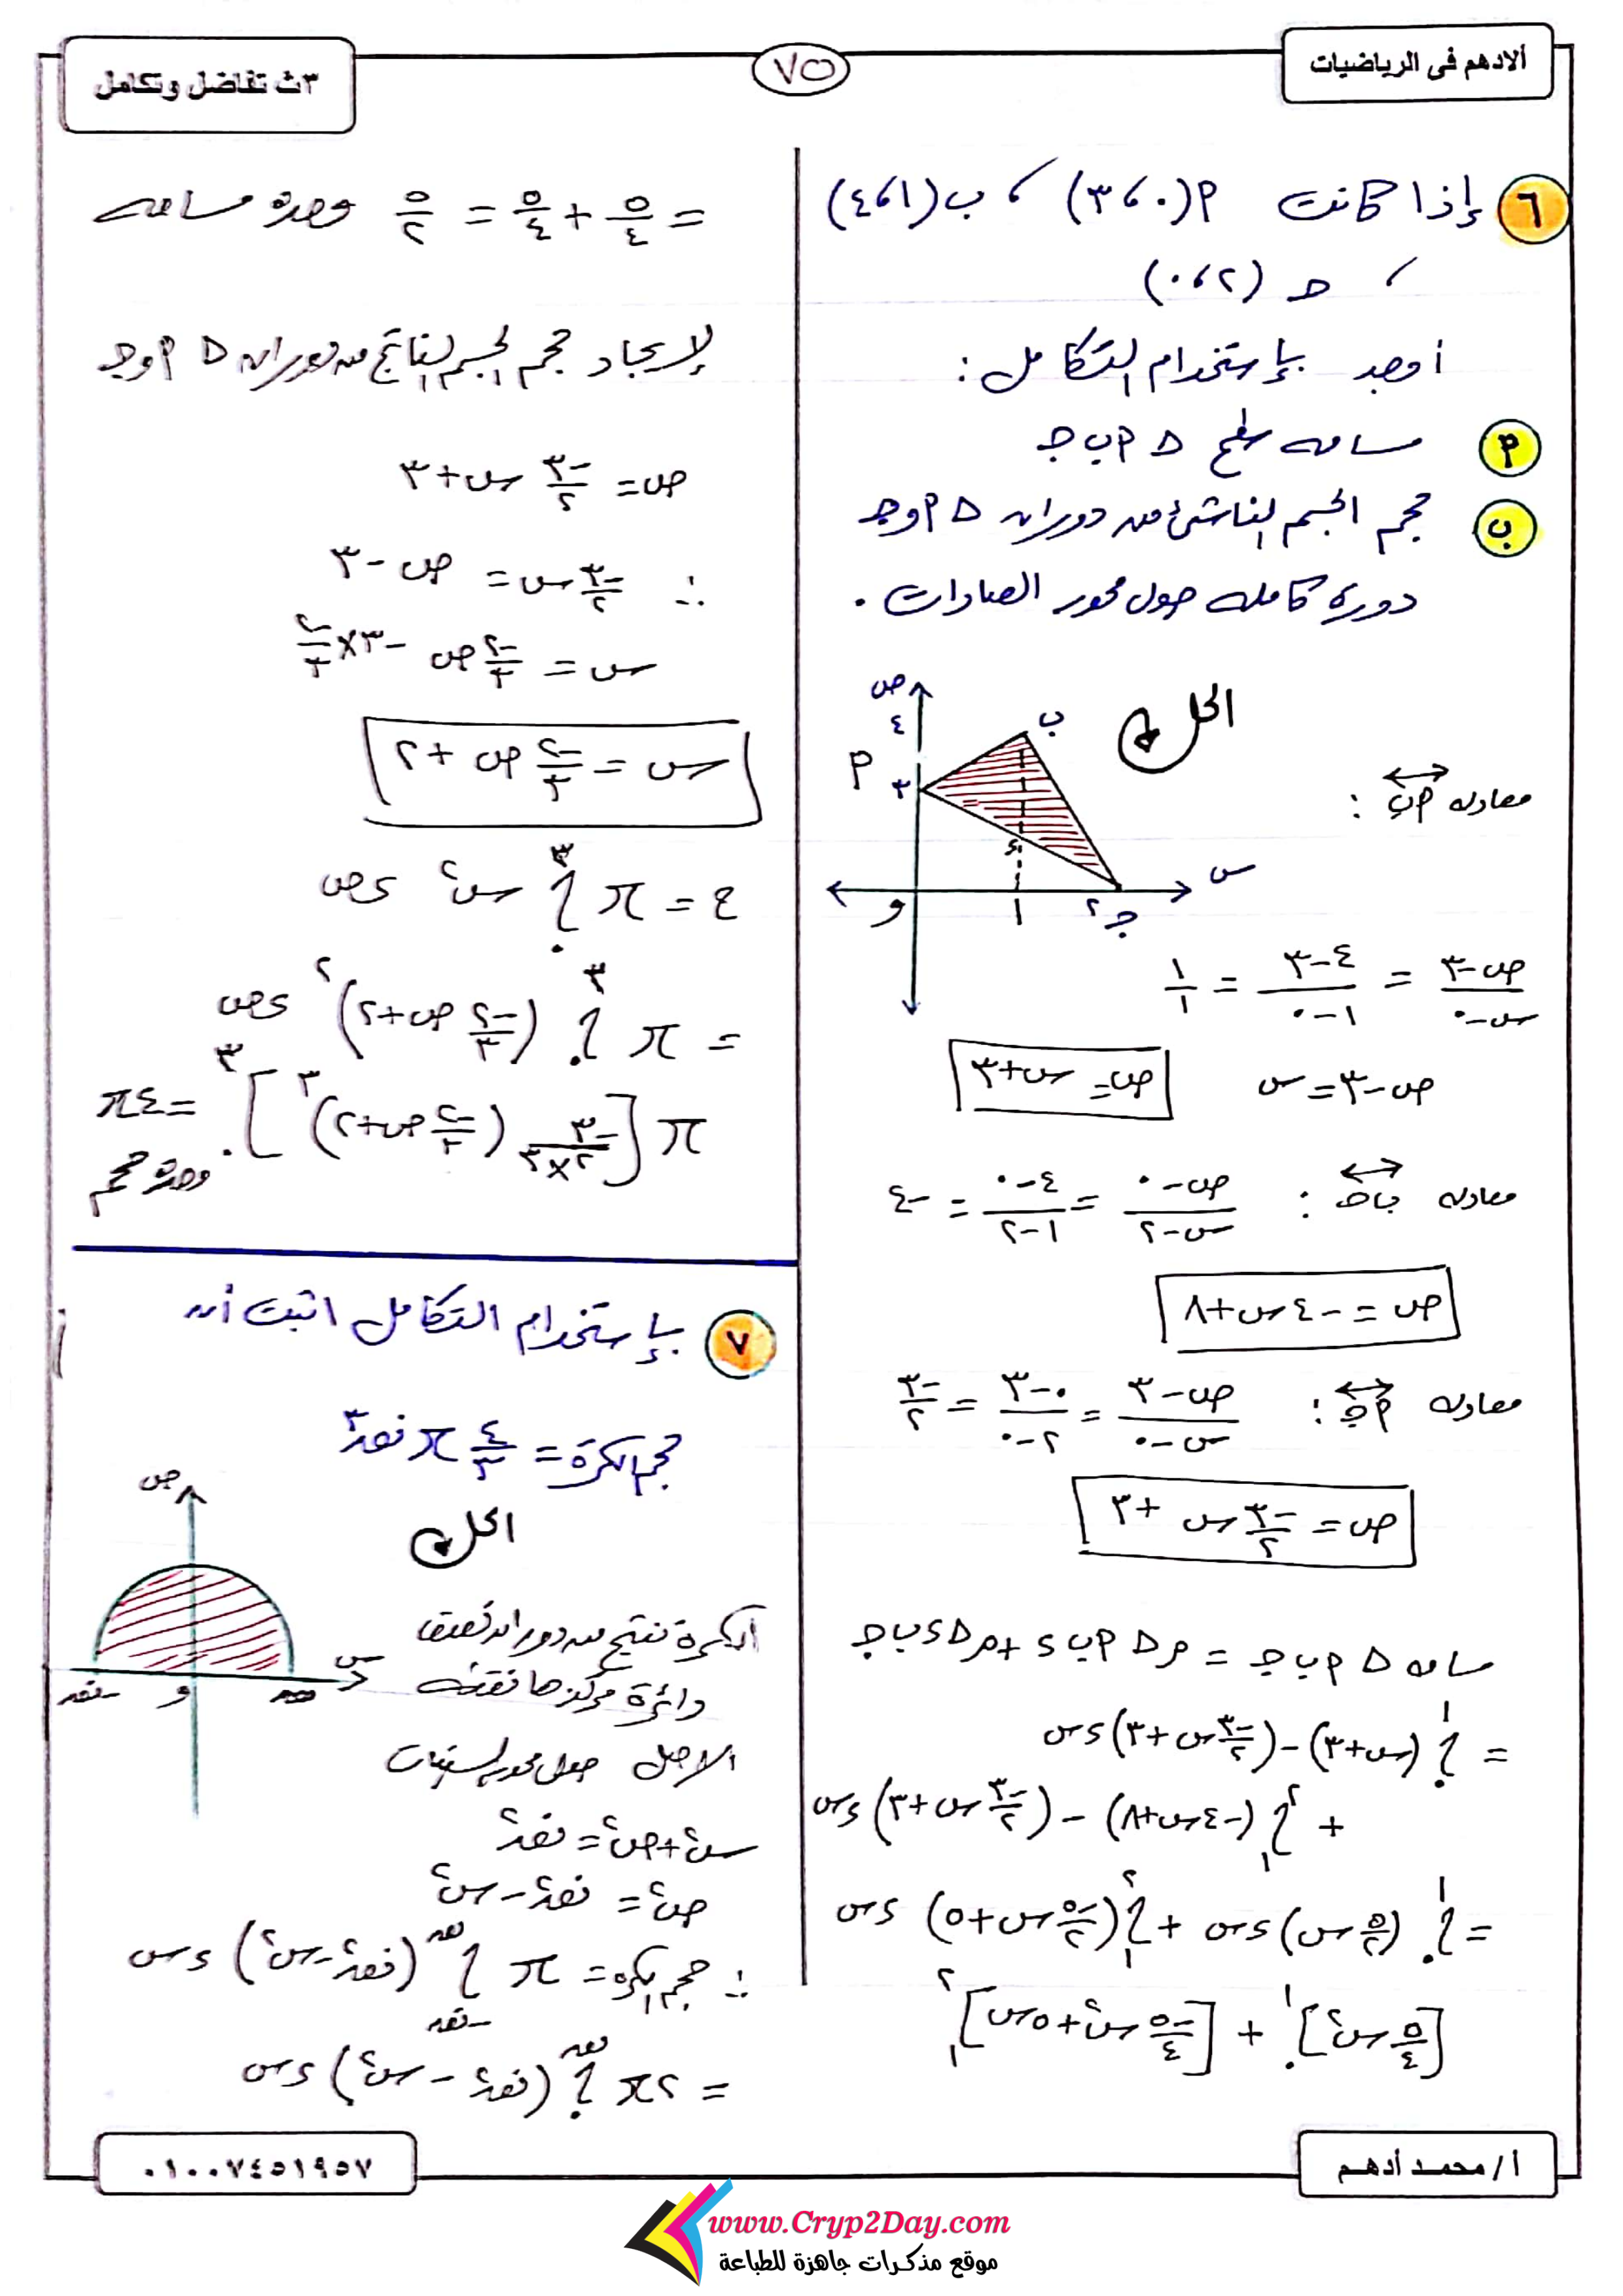 ألادهم فى الرياضيات
٧٥
٣ث تفاضل وتكامل
٦ إذا كانت أ(٠، ٣) ، ب(١، ٤)
، ح (٢، ٠)
أوجد بإستخدام التكامل :
أ مساحه سطح Δ أ ب ج
ب حجم الجسم الناشئ من دوران Δ أ و ج
دورة كامله حول محور الصادات .
الحل
ص
٤
ب
أ
٣
ء
س
و
١
٢
ج
معادله أب :
(ص-٣)/(س-٠) = (٤-٣)/(١-٠) = ١/١
ص-٣ = س
ص = س+٣
معادله ب ج : (ص-٠)/(س-٢) = (٤-٠)/(١-٢) = -٤
ص = -٤س+٨
معادله أ ج : (ص-٣)/(س-٠) = (٠-٣)/(٢-٠) = -٣/٢
ص = -٣/٢ س + ٣
مساحه Δ أ ب ج = م Δ أ ب ء + م Δ ء ب ج
= ∫₀¹ (س+٣) - (-٣/٢ س+٣) ءس
+ ∫₁² (-٤س+٨) - (-٣/٢ س+٣) ءس
= ∫₀¹ (٥/٢ س) ءس + ∫₁² (-٥/٢ س+٥) ءس
[٥/٤ س²]₀¹ + [-٥/٤ س² + ٥س]₁²
= ٥/٤ + ٥/٤ = ٥/٢ وحدة مساحه
لإيجاد حجم الجسم الناتج من دوران Δ أ و ج
ص = -٣/٢ س + ٣
∴ -٣/٢ س = ص - ٣
س = -٢/٣ ص -٣ × -٢/٣
س = -٢/٣ ص + ٢
ح = π ∫₀³ س² ءص
= π ∫₀³ (-٢/٣ ص+٢)² ءص
π [-٣/(٢×٣) (-٢/٣ ص+٢)³]₀³ = ٤π
وحدة حجم
٧ بإستخدام التكامل اثبت أن
حجم الكرة = ٤/٣ π نق³
الحل
ص
س
-نق
و
نق
الكرة تنتج من دوران نصف
دائرة مركزها نقطة
الاصل حول محور السينات
س²+ص² = نق²
ص² = نق² - س²
∴ حجم الكرة = π ∫ من -نق إلى نق (نق² - س²) ءس
= ٢π ∫ من ٠ إلى نق (نق² - س²) ءس
أ/ محمد أدهم
٠١٠٠٧٤٥١٩٥٧
www.Cryp2Day.com
موقع مذكرات جاهزة للطباعة